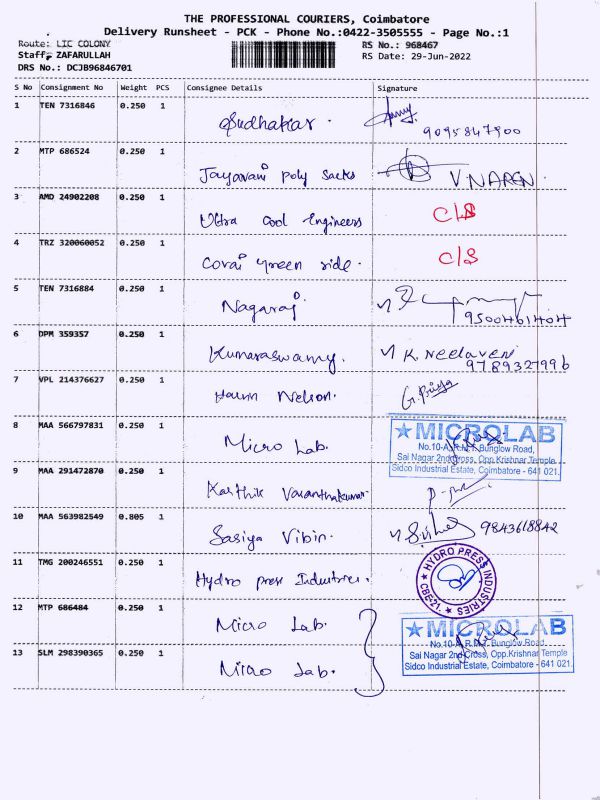 THE PROFESSIONAL COURIERS, Coimbatore
Delivery Runsheet - PCK - Phone No.:0422-3505555 - Page No.:1
Route: LIC COLONY
RS No.: 968467
Staff: ZAFARULLAH
RS Date: 29-Jun-2022
DRS No.: DCJB96846701
S No Consignment No Weight PCS Consignee Details Signature
1 TEN 7316846 0.250 1 Sudhakar.
9095847900
2 MTP 686524 0.250 1 Jayavani Poly Sacks V NAREN
3 AMD 24902208 0.250 1 Ultra Cool Engineers C/S
4 TRZ 320060052 0.250 1 Covai Green side. C/S
5 TEN 7316884 0.250 1 Nagaraj
9500461404
6 DPM 359357 0.250 1 Kumaraswamy. K. Neelaveni
9789327996
7 VPL 214376627 0.250 1 Nelson. G. Priya
8 MAA 566797831 0.250 1 Micro Lab.
MICROLAB
No.10-A, R.M.R. Bunglow Road,
Sai Nagar 2nd Cross, Opp.Krishnar Temple
Sidco Industrial Estate, Coimbatore - 641 021.
9 MAA 291472870 0.250 1 Karthik Vasanthakumar
10 MAA 563982549 0.805 1 Sasiya Vibin. 9843618842
11 TMG 200246551 0.250 1 Hydro press Industries.
HYDRO PRESS INDUSTRIES
CBE-21.
12 MTP 686484 0.250 1 Micro Lab.
MICROLAB
No.10-A, R.M.R. Bunglow Road,
Sai Nagar 2nd Cross, Opp.Krishnar Temple
Sidco Industrial Estate, Coimbatore - 641 021.
13 SLM 298390365 0.250 1 Micro Lab.